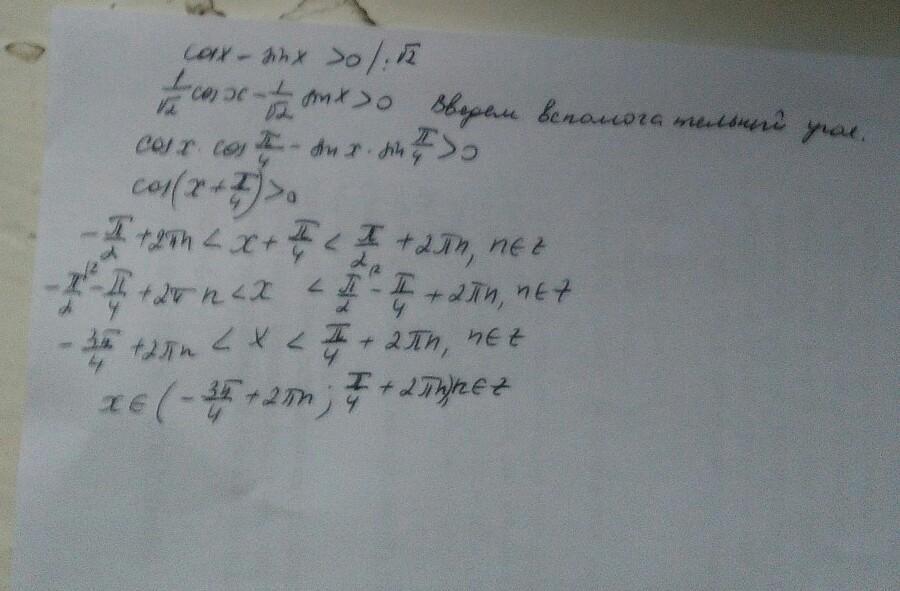 cosx - sinx > 0 /: √2
1/√2 cosx - 1/√2 sinx > 0 Введем вспомогательный угол.
cosx · cos π/4 - sinx · sin π/4 > 0
cos(x + π/4) > 0
-π/2 + 2πn < x + π/4 < π/2 + 2πn, n∈z
-π/2^{12} - π/4 + 2πn < x < π/2^{12} - π/4 + 2πn, n∈z
-3π/4 + 2πn < x < π/4 + 2πn, n∈z
x∈(-3π/4 + 2πn; π/4 + 2πn), n∈z